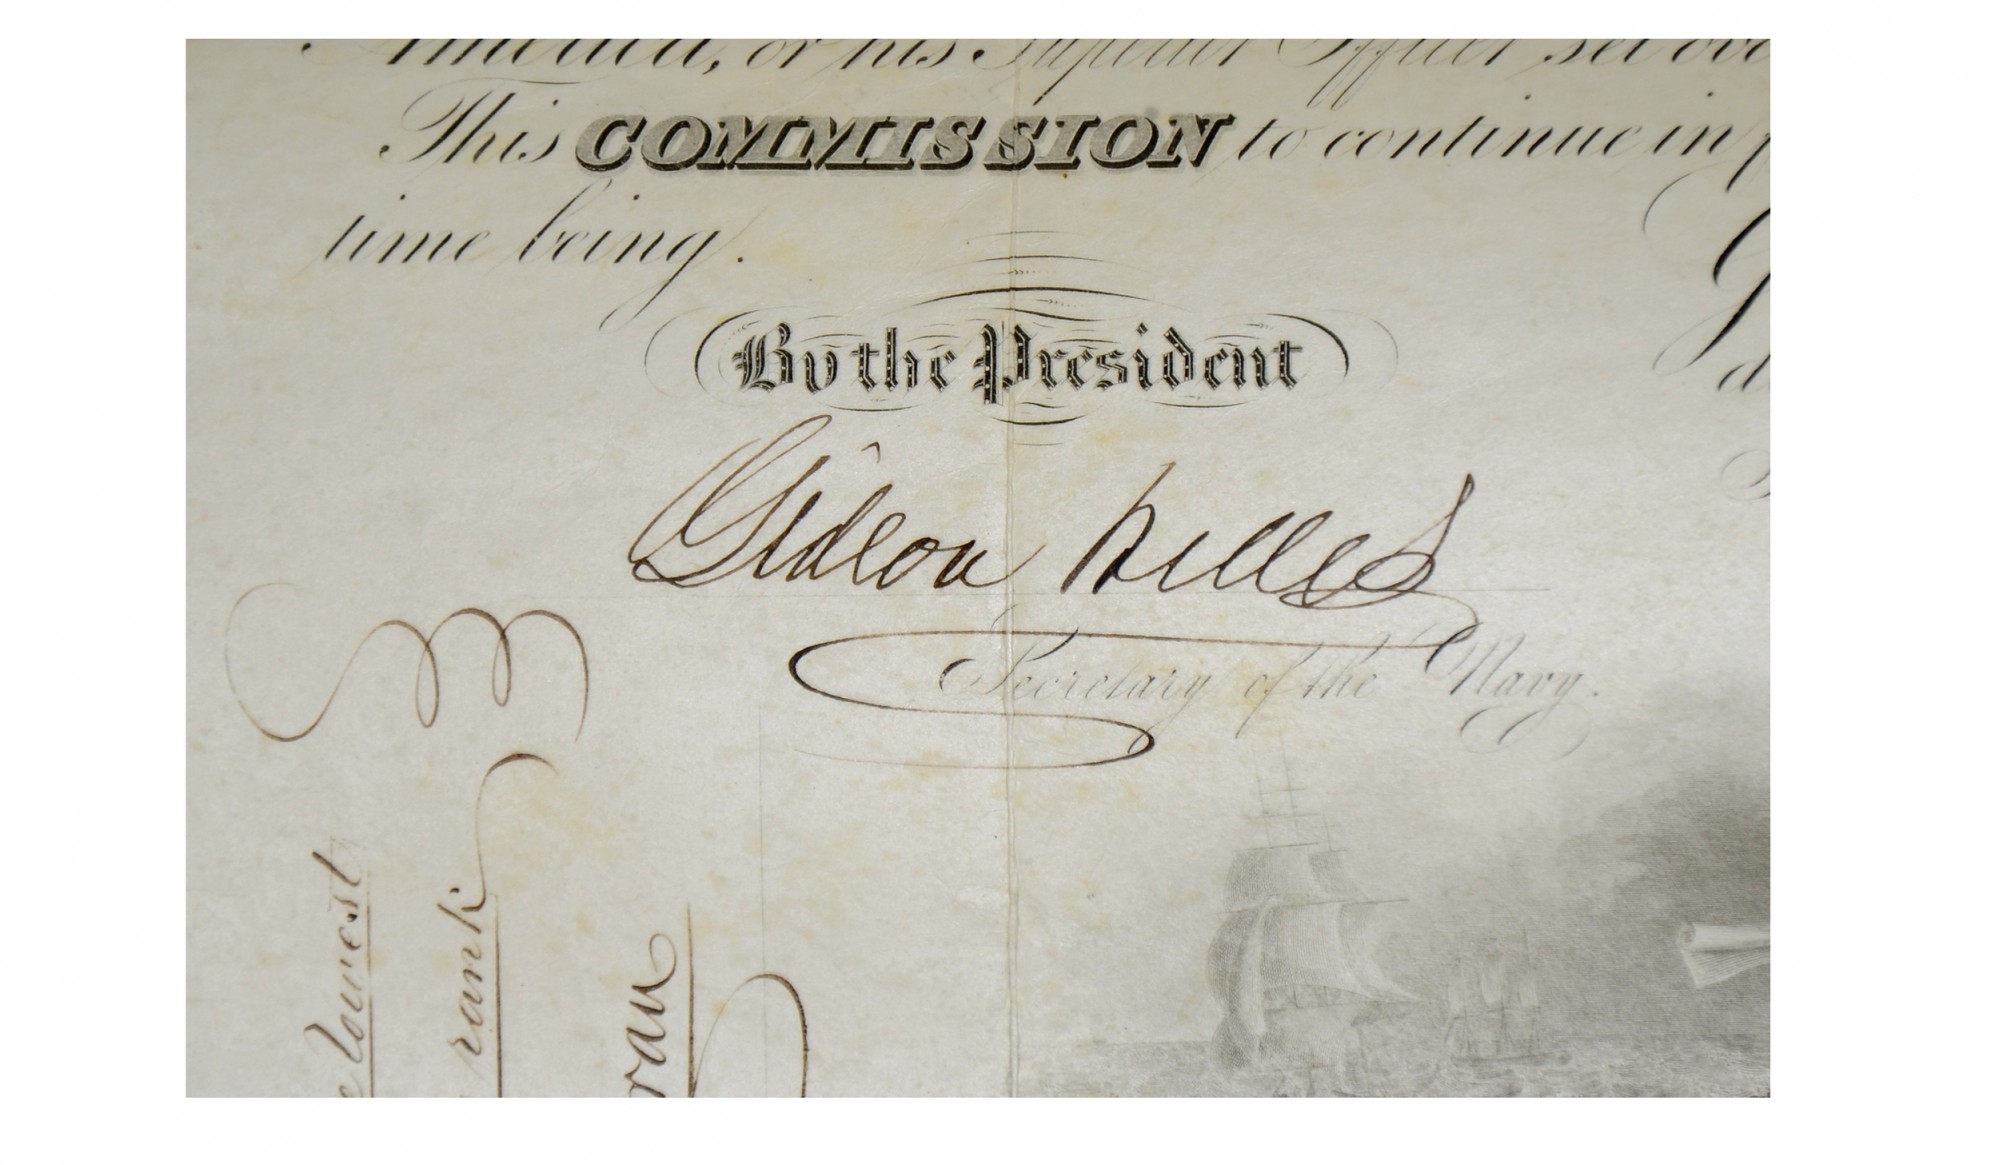 America, or his Superior Officer set ove
This COMMISSION to continue in
time being.
By the President
Gideon Welles
Secretary of the Navy.
lowest
rank